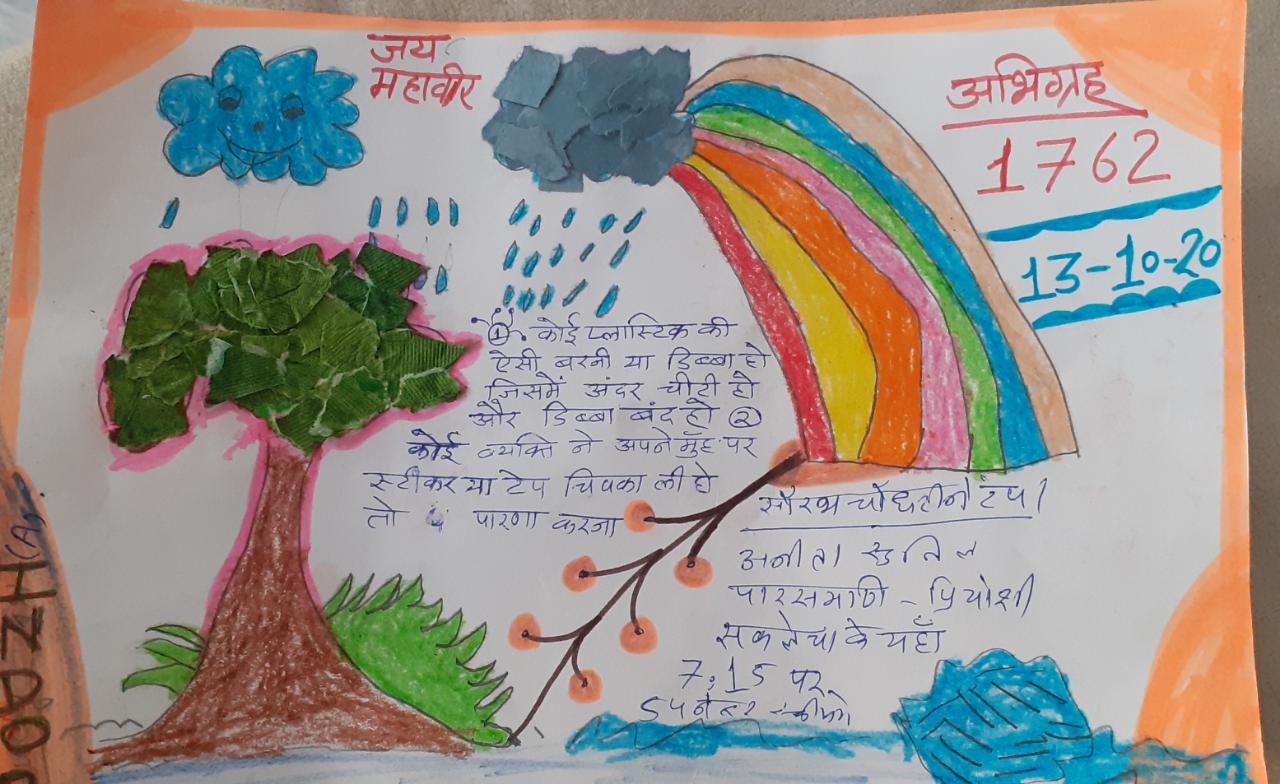 जय
महावीर
अभिग्रह
1762
13-10-20
① कोई प्लास्टिक की
ऐसी बरनी या डिब्बा हो
जिसमें अंदर चीटी हो
और डिब्बा बंद हो ②
कोई व्यक्ति ने अपने मुँह पर
स्टीकर या टेप चिपका ली हो
तो पारणा करना
सौरभ चौधरी ने टेप
अनीता सुनिल
पारसमणि - प्रियांशी
सकलेचा के यहाँ
7:15 पर
INDO